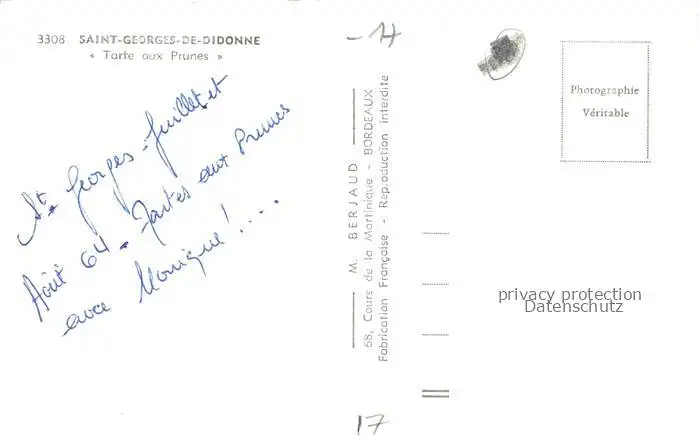 3308 SAINT-GEORGES-DE-DIDONNE
« Tarte aux Prunes »
St Georges - Juillet et
Août 64 - Tartes aux Prunes
avec Monique! ....
M. BERJAUD
68, Cours de la Martinique - BORDEAUX
Fabrication Française - Reproduction interdite
Photographie
Véritable
privacy protection
Datenschutz
17